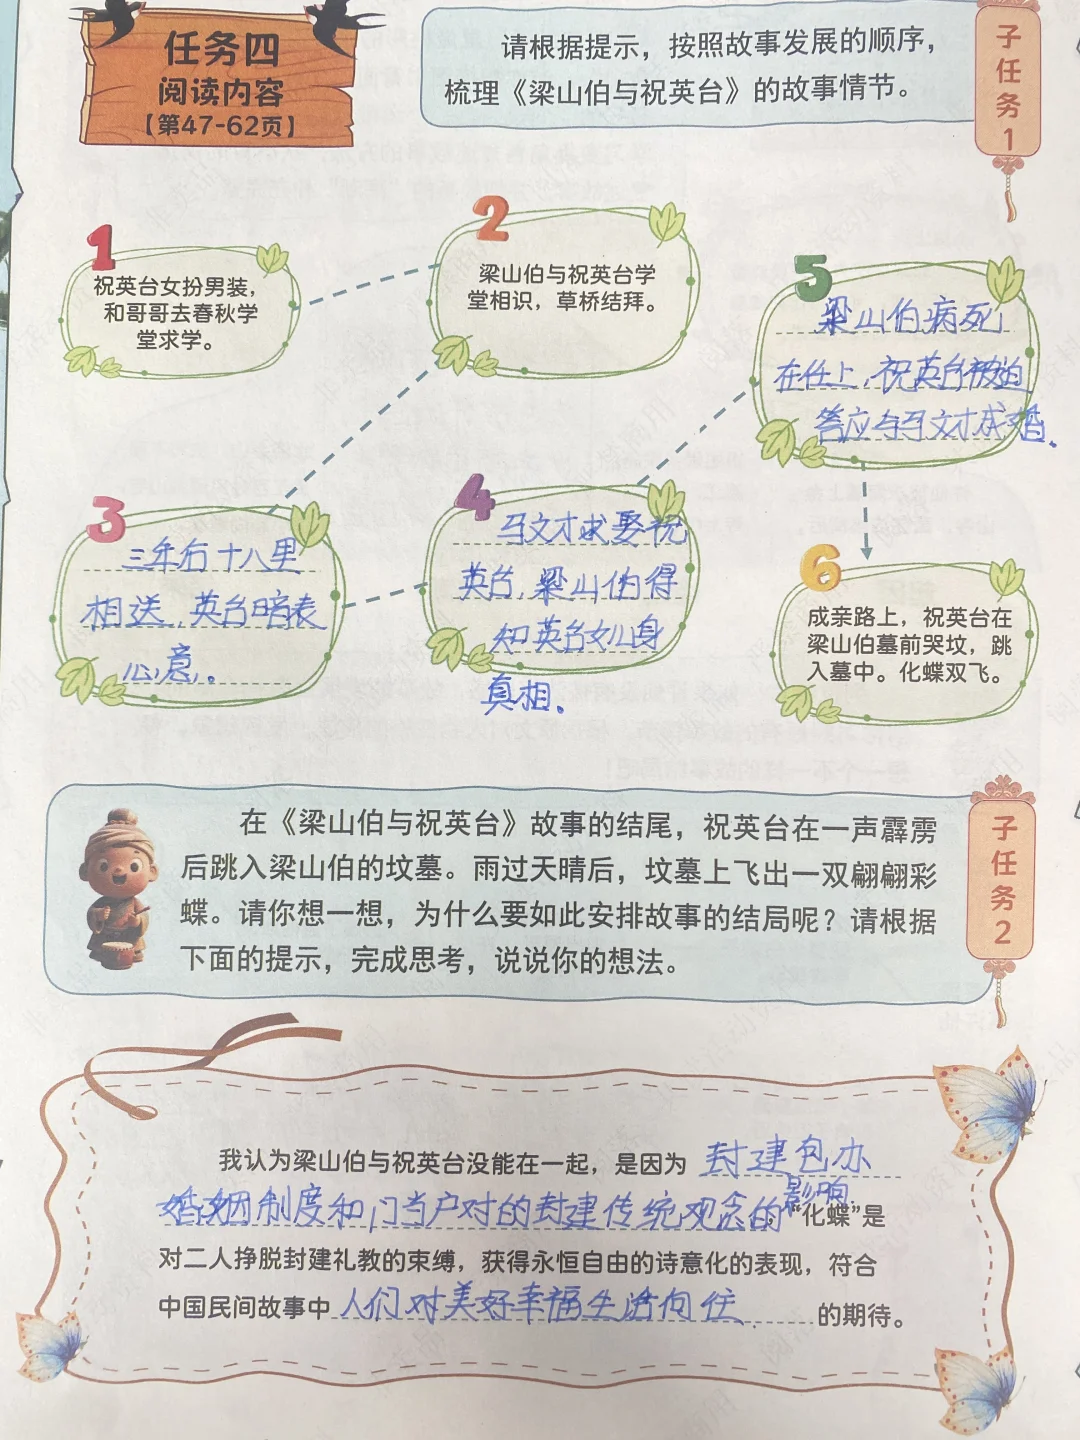 任务四
阅读内容
【第47-62页】
请根据提示，按照故事发展的顺序，
梳理《梁山伯与祝英台》的故事情节。
子任务1
1
祝英台女扮男装，
和哥哥去春秋学
堂求学。
2
梁山伯与祝英台学
堂相识，草桥结拜。
3
三年后十八里
相送，英台暗表
心意。
4
马文才求娶祝
英台，梁山伯得
知英台女儿身
真相。
5
梁山伯病死
在任上，祝英台被迫
答应与马文才成婚。
6
成亲路上，祝英台在
梁山伯墓前哭坟，跳
入墓中。化蝶双飞。
在《梁山伯与祝英台》故事的结尾，祝英台在一声霹雳
后跳入梁山伯的坟墓。雨过天晴后，坟墓上飞出一双翩翩彩
蝶。请你想一想，为什么要如此安排故事的结局呢？请根据
下面的提示，完成思考，说说你的想法。
子任务2
我认为梁山伯与祝英台没能在一起，是因为封建包办
婚姻制度和门当户对的封建传统观念的影响。“化蝶”是
对二人挣脱封建礼教的束缚，获得永恒自由的诗意化的表现，符合
中国民间故事中人们对美好幸福生活向往的期待。